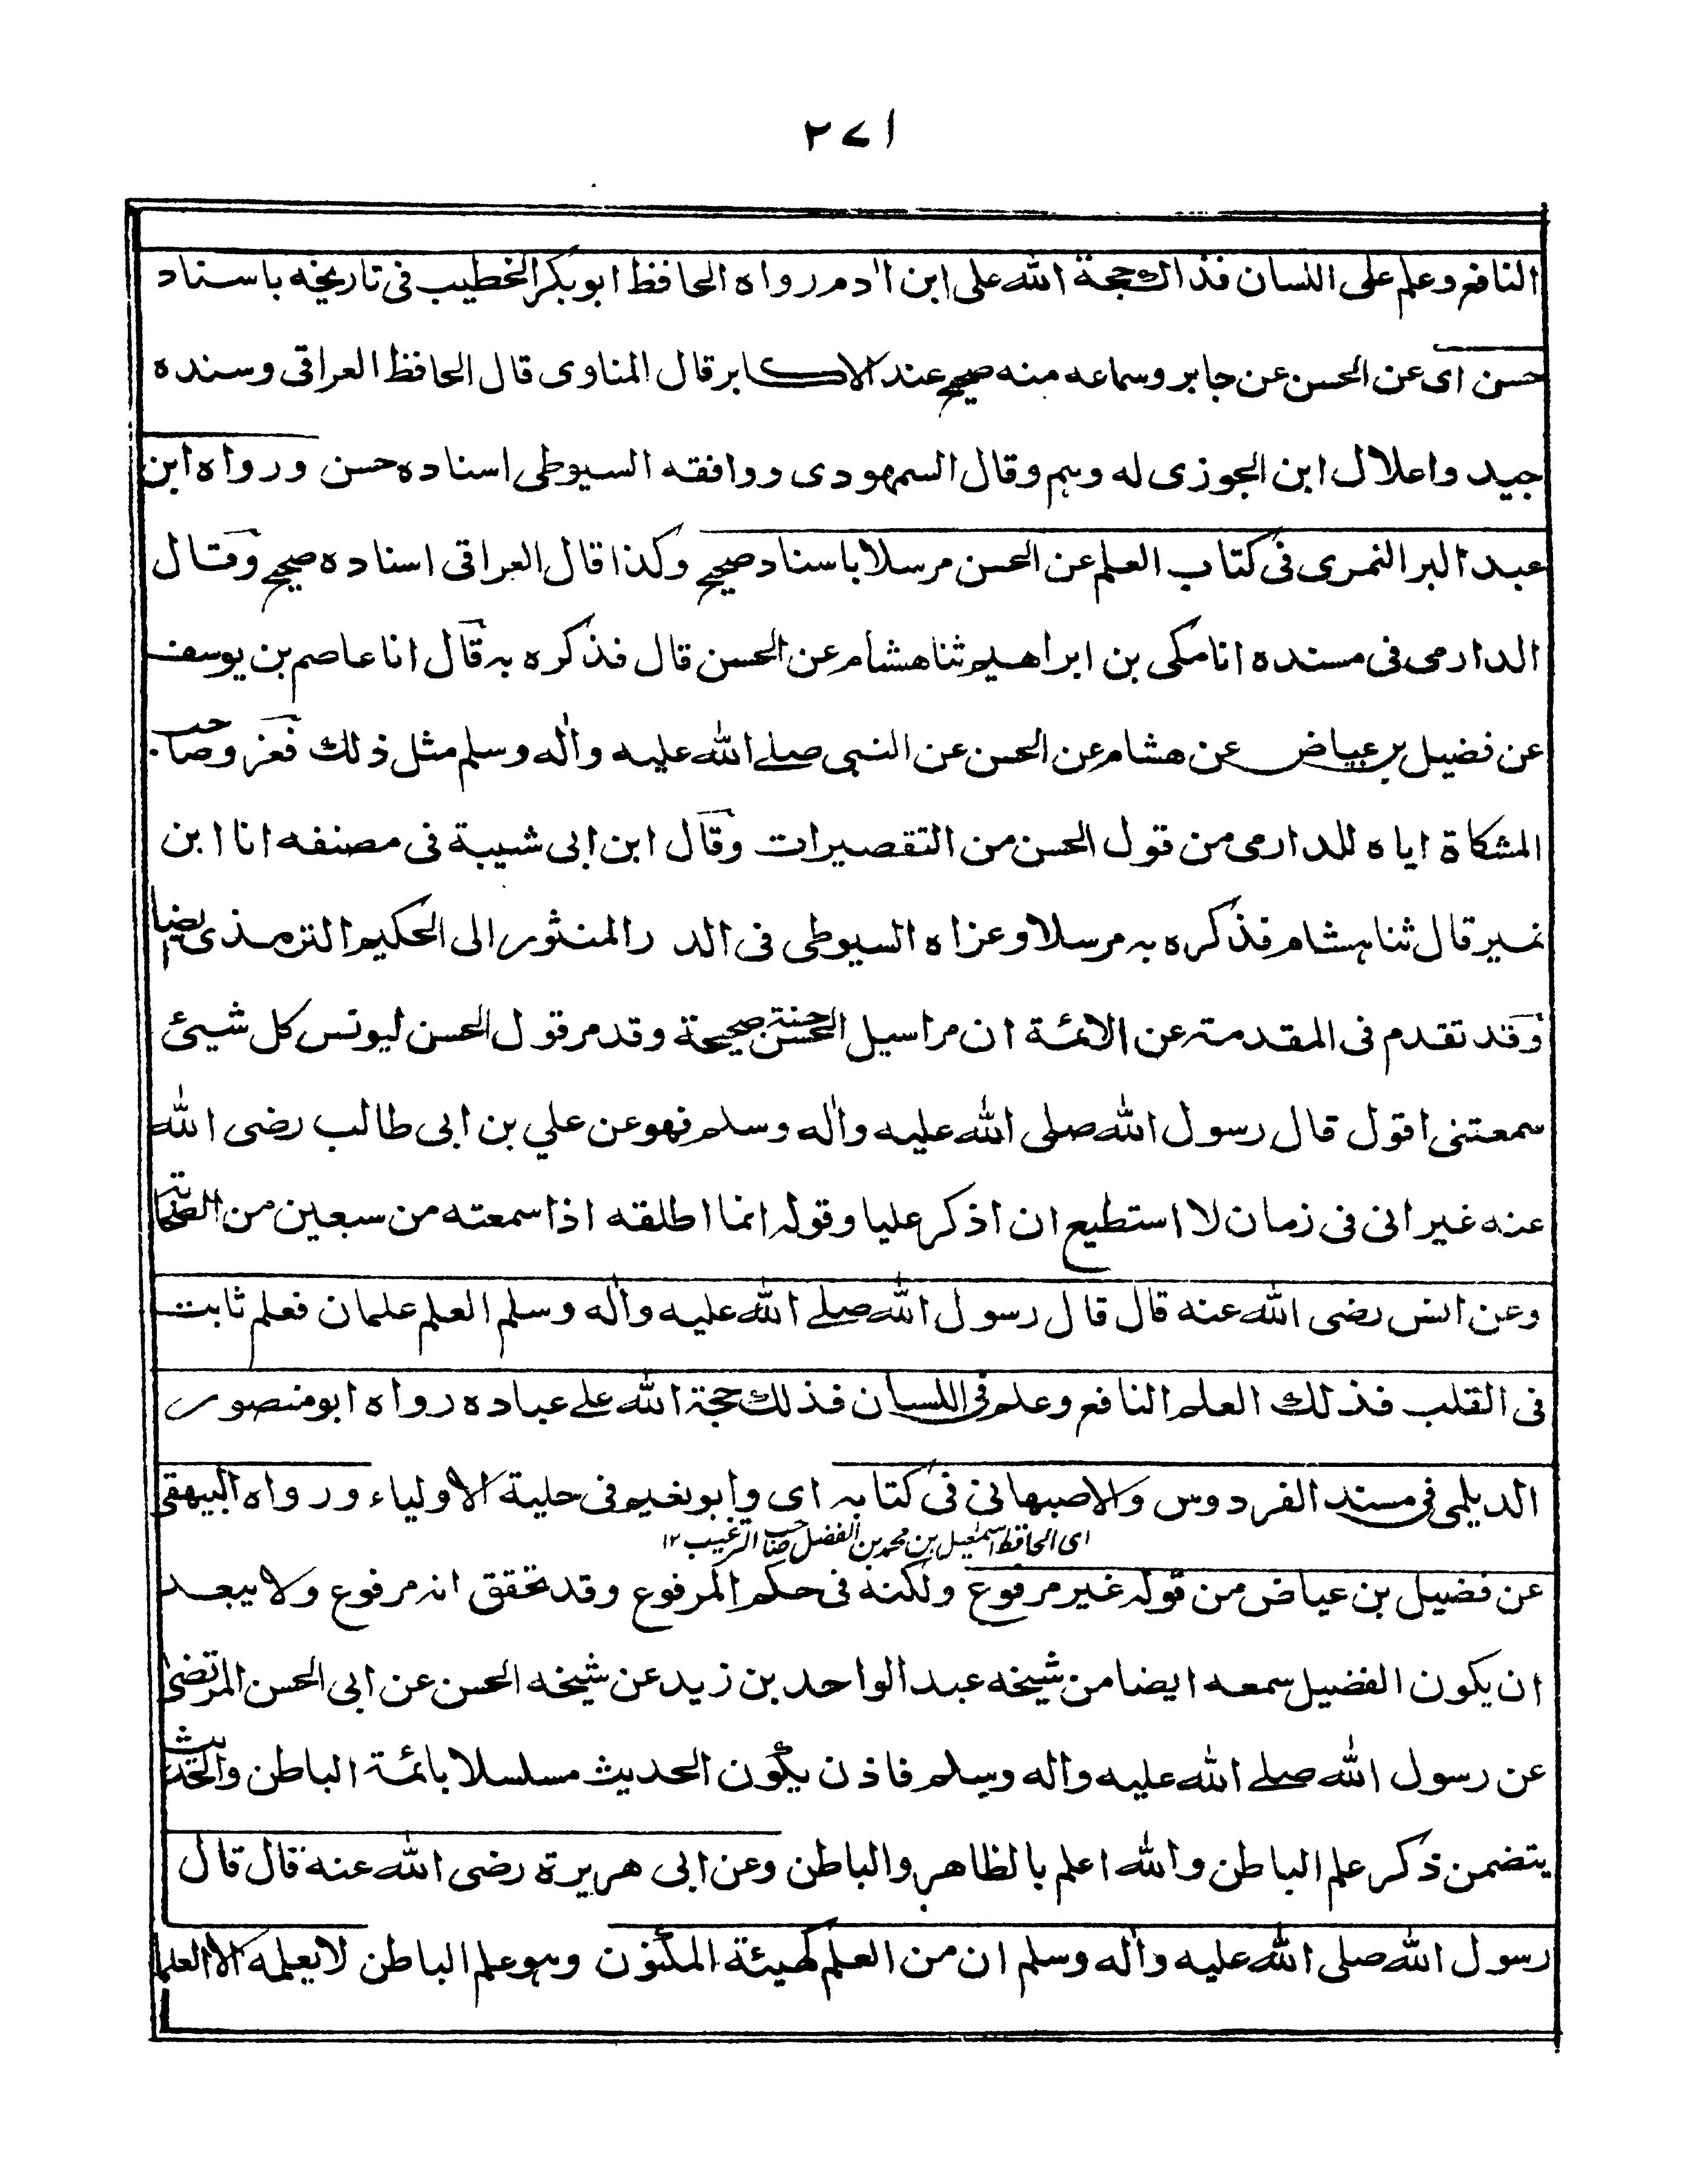 ٢٧١
النافع وعلم على اللسان فذالك حجة الله على ابن اٰدم رواه الحافظ ابوبكر الخطيب فى تاريخه باسناد
حسن اى عن الحسن عن جابر وسماعه منه صحيح عند الاكابر قال المناوى قال الحافظ العراقى وسنده
جيد واعلال ابن الجوزى له وہم وقال السمهودى ووافقه السيوطى اسناده حسن ورواه ابن
عبد البر النمرى فى كتاب العلم عن الحسن مرسلا باسناد صحيح وكذا قال العراقى اسناده صحيح وقال
الدارمى فى مسنده انا مكى بن ابراهيم ثنا هشام عن الحسن قال فذكره بہ قال انا عاصم بن يوسف
عن فضيل بن عياض عن هشام عن الحسن عن النبى صلے الله عليه واٰله وسلم مثل ذلك فعزو صاحب
المشكاة اياه للدارمى من قول الحسن من التقصيرات وقال ابن ابى شيبة فى مصنفه انا ابن
نمير قال ثنا ہشام فذكره بہ مرسلا وعزاه السيوطى فى الدر المنثور الى الحكيم الترمذى ايضا
وقد تقدم فى المقدمة عن الائمة ان مراسيل الحسن حسنة صحيحة وقد مر قول الحسن ليونس كل شيئ
سمعتنى اقول قال رسول الله صلى الله عليه واٰله وسلم فهو عن علي بن ابى طالب رضى الله
عنه غير انى فى زمان لا استطيع ان اذكر عليا وقولہ انما اطلقه اذا سمعته من سبعين من الصحابة
وعن انس رضى الله عنه قال قال رسول الله صلے الله عليه واٰله وسلم العلم علمان فعلم ثابت
فى القلب فذلك العلم النافع وعلم فى اللسان فذلك حجة الله علے عباده رواه ابو منصور
الديلمى فى مسند الفردوس والاصبهانى فى كتابہ اى وابو نعيم فى حلية الاولياء ورواه البيهقى
اى الحافظ اسمٰعيل بن محمد بن الفضل صاحب الترغيب ١٢
عن فضيل بن عياض من قولہ غير مرفوع ولكنه فى حكم المرفوع وقد تحقق انہ مرفوع ولا يبعد
ان يكون الفضيل سمعه ايضا من شيخه عبد الواحد بن زيد عن شيخه الحسن عن ابى الحسن المرتضى
عن رسول الله صلے الله عليه واٰله وسلم فاذن يكون الحديث مسلسلا بائمة الباطن والحديث
يتضمن ذكر علم الباطن والله اعلم بالظاهر والباطن وعن ابى هريرة رضى الله عنه قال قال
رسول الله صلى الله عليه واٰله وسلم ان من العلم كهيئة المكنون وہو علم الباطن لا يعلمه الا العلما